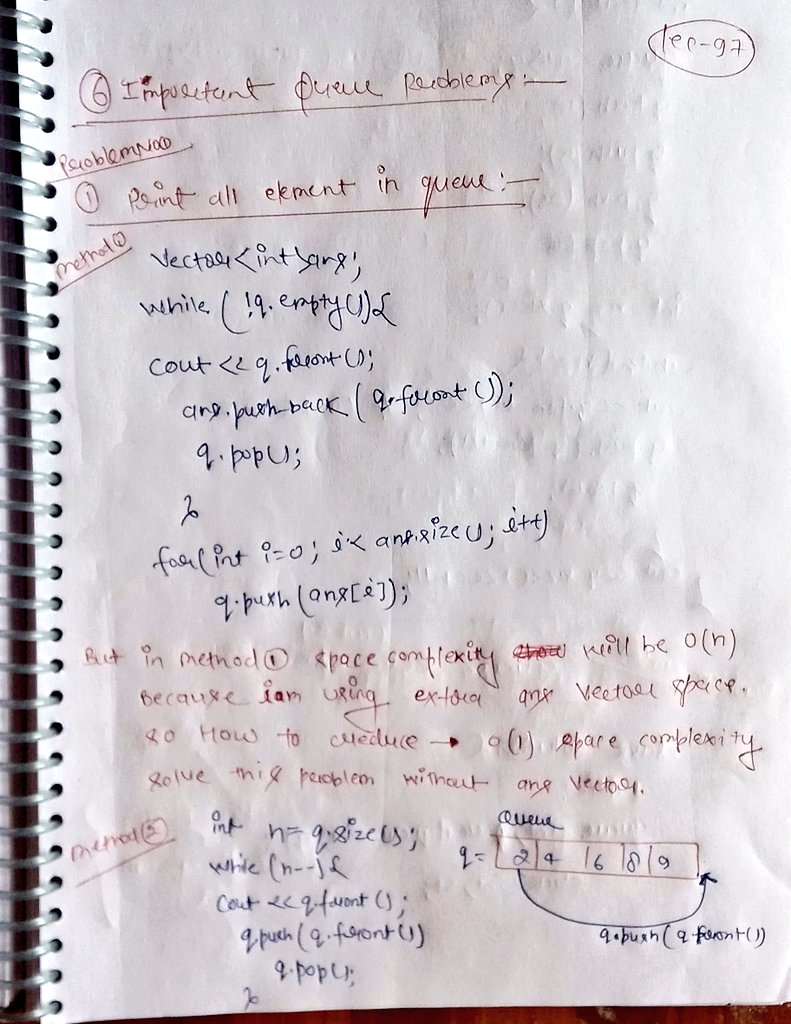 Lec-97
⑥ Important Queue Problems:—
Problem No
① Print all element in queue:—
method①
Vector<int>ans;
while (!q.empty()){
cout << q.front();
ans.push-back(q.front());
q.pop();
}
for(int i=0; i< ans.size(); i++)
q.push(ans[i]);
But in method① space complexity will be O(n)
Because iam using extra ans vector space.
so How to reduce → O(1) space complexity
solve this problem without ans vector.
method②
int n= q.size();
while (n--){
cout << q.front();
q.push(q.front())
q.pop();
}
Queue
q= 2 4 6 8 9
q.push(q.front())